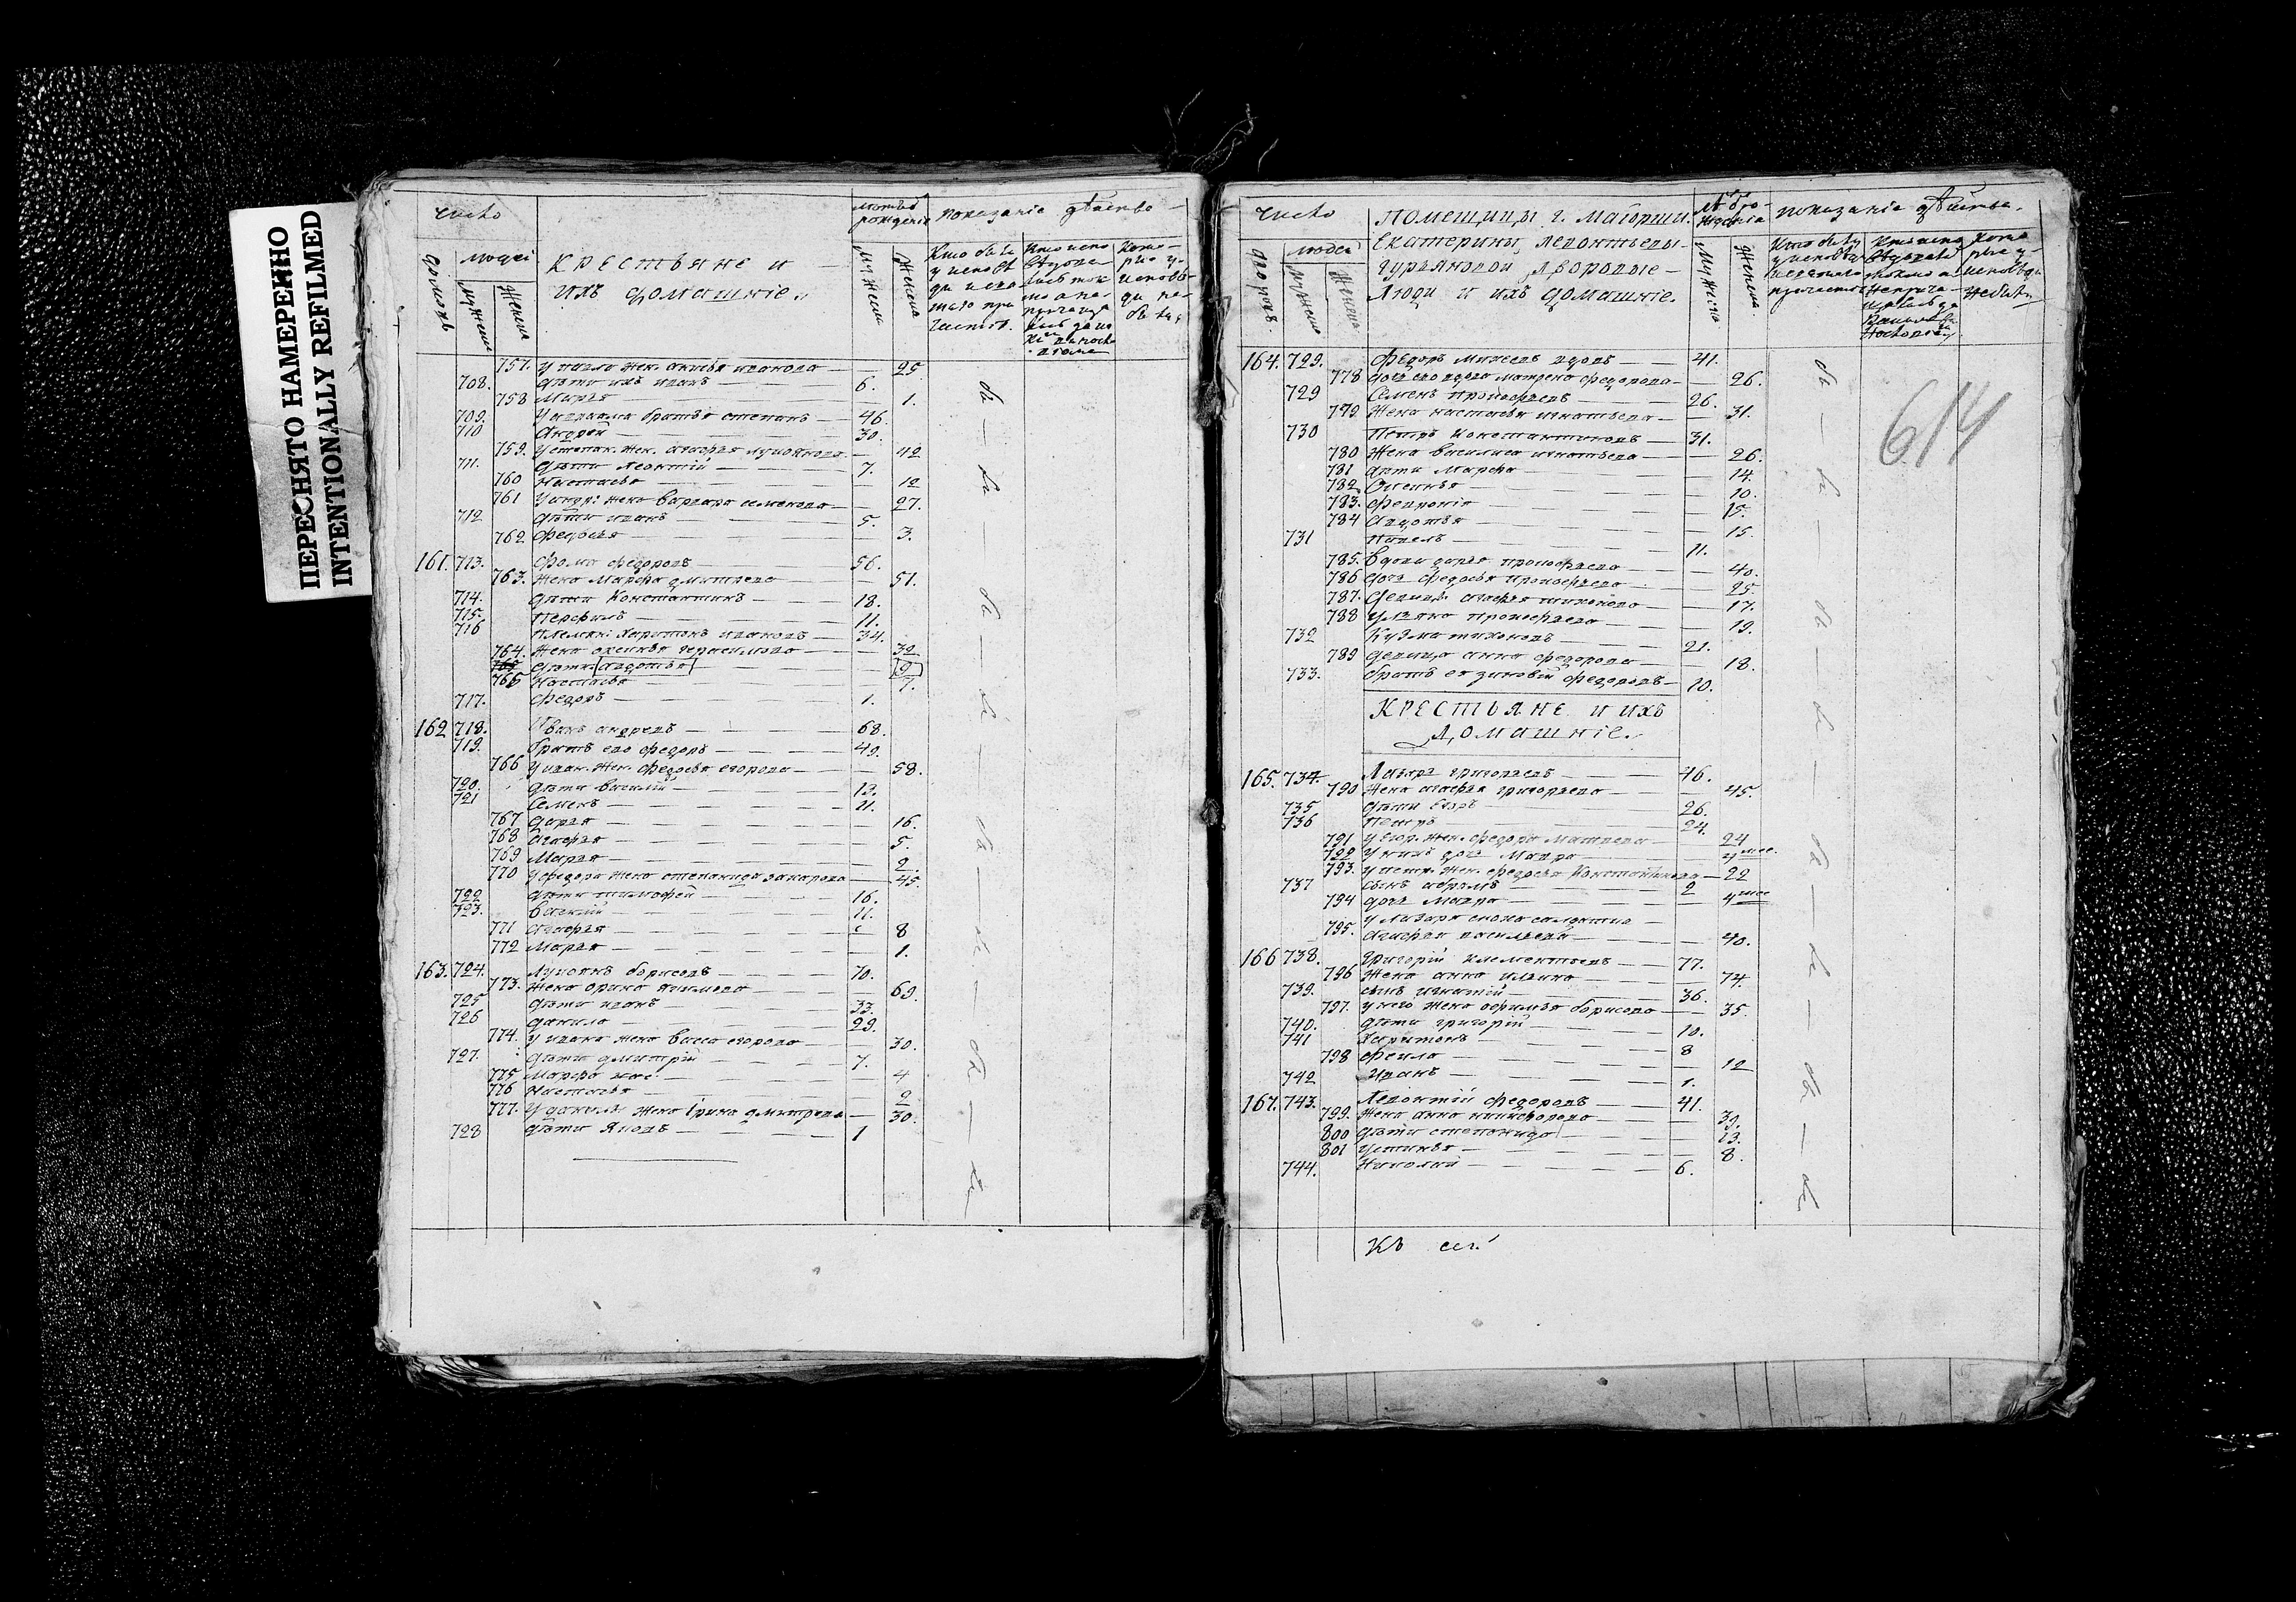 ПЕРЕСНЯТО НАМЕРЕННО
INTENTIONALLY REFILMED
число
людей
дворовъ
мужеска
женска
крестьяне и
ихъ домашніе.
показаніе действа
757. жен. ивановa 25
708. дѣти ихъ иванъ 6.
758 Марья 1.
709. братья степанъ 46.
710 Андрей 30.
759. У степан. жен. агафья лукоянова 42
711. дѣти леонтій 7.
760 Настасья 12
761 У андр: жена варвара семенова 27.
712 дѣти иванъ 5.
762. федосья 3.
161. 713. фома федоровъ 56.
763. жена марфа дмитрева 51.
714. дѣти Константинъ 18.
715. Перфилъ 11.
716 племян: харитонъ ивановъ 34.
764. жена аксинья герасимова 32
765 дѣти авдотья 9
765 Настасья 7.
717. федоръ 1.
162 718. Иванъ андреевъ 68.
719. братъ его федоръ 49.
766 У иван. жен. федосья егорова 58.
720. дѣти василій 13.
721 Семенъ 11.
767 дарья 16.
768 Агафья 5.
769 Марья 2.
770 У федора жена степанида захарова 45.
722 дѣти тимофей 16.
723. Василій 11.
771 Агафья 8
772 Марья 1.
163. 724. Лукоянъ борисовъ 70.
773. жена орина акимова 69.
725 дѣти иванъ 33.
726 данило 29.
774. У ивана жена васса егорова 30.
727. дѣти дмитрій 7.
775 Марфа 4
776 Настасья 2
777. У данилы жена Ірина дмитрева 30.
728 дѣти Яковъ 1
число
людей
дворовъ.
мужеска
женска
помещицы г. маіорши
Екатерины леонтьевы
гурьяновой дворовые
люди и ихъ домашніе.
показаніе действа.
614
164. 729. Федоръ михеевъ вдовъ 41.
778 дочь его вдова матрена федорова 26.
729 Семенъ прокофьевъ 26.
779 жена настасья игнатьева 31.
730 Петръ константиновъ 31.
780 жена василиса игнатьева 26.
781 дѣти марфа 14.
782. 10.
783. февронія 15.
784 Авдотья 15.
731 Павелъ 11.
785. вдова дарья прокофьева 40.
786 дочь федосья прокофьева 25.
787. девица агафья тихонова 17.
788 ульяна прокофьева 19.
732 Кузма тихоновъ 21.
789 девица анна федорова 18.
733. братъ ея зиновій федоровъ 10.
Крестьяне и ихъ
домашніе.
165. 734. Лазарь григорьевъ 46.
790 жена агафья григорьева 45.
735 дѣти Егоръ 26.
736 Петръ 24.
791 У егор. жен. федора матвеева 24
792 У нихъ доч. мавра 4 мес.
793. У петр. жен. федосья константинова 22
737 сынъ абрамъ 2
794 дочь мавра 4 мес
У лазаря сноха солдатка
795. Агафья васильева 40.
166 738. Григорій климентьевъ 77.
796 жена анна ильина 74.
739. сынъ игнатій 36.
797. у него жена афимья борисова 35.
740. дѣти григорій 10.
741 Харитонъ 8
798 фекла 12
742 иванъ 1.
167. 743. Леонтій федоровъ 41.
799. жена анна никифорова 39.
800 дѣти степанида 13.
801 устинья 8.
744. Николай 6.